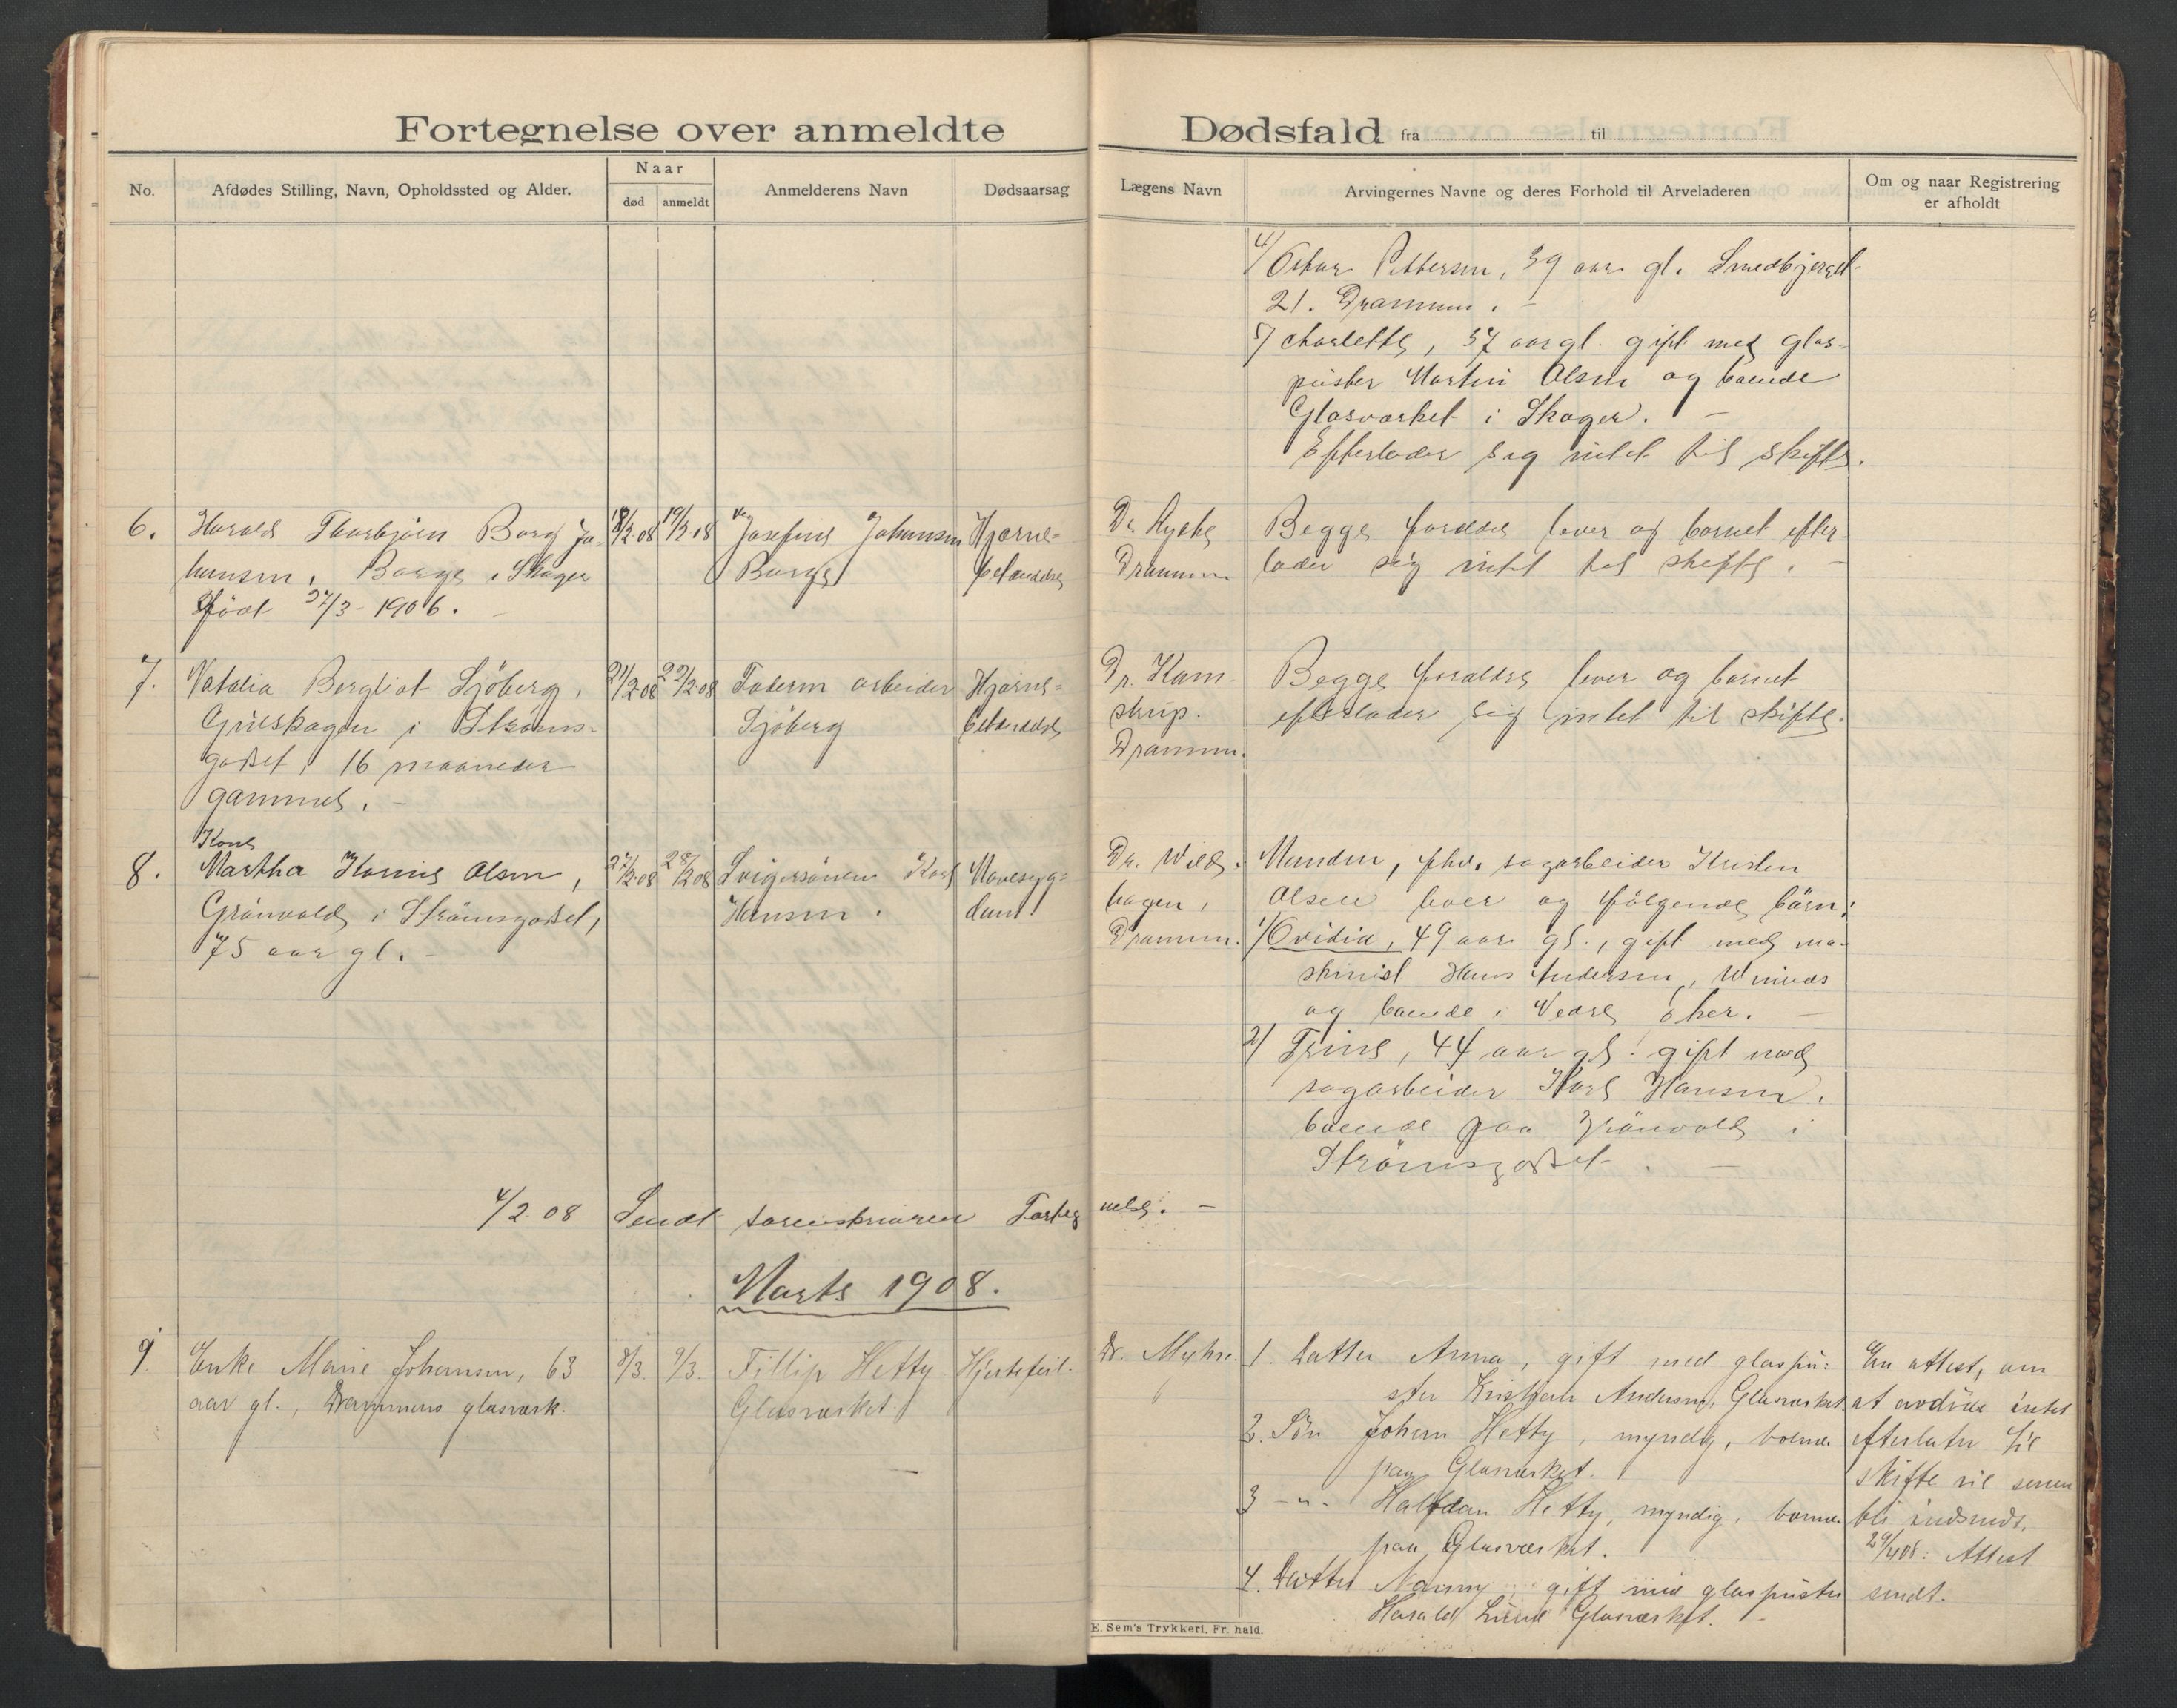 Fortegnelse over anmeldte Dødsfald fra til
No.
Afdødes Stilling, Navn, Opholdssted og Alder.
Naar
død
anmeldt
Anmelderens Navn
Dødsaarsag
Lægens Navn
Arvingernes Navne og deres Forhold til Arveladeren
Om og naar Registrering
er afholdt
4/ Oskar Pettersen, 39 aar gl. Smedbjerget
21. Drammen. -
5/ Charlotte, 37 aar gl. gift med glas-
puster Martin Olsen og boende
Glasværket i Skoger. -
Efterlader sig intet til skifte.
6.
Harald Thorbjørn Borg Jo-
hansen, Borge i Skoger
født 27/3 1906. -
18/2 08
19/2 08
Josefine Johansen
Borge
Hjerne-
betændelse
Dr. Ryske
Drammen
Begge forældre lever og barnet efter-
lader sig intet til skifte. -
7.
Natalia Bergliot Sjöberg,
Gulskogen i Ströms-
godset, 16 maaneder
gammel. -
21/2 08
22/2 08
Faderen arbeider
Sjöberg
Hjerne-
betændelse
Dr. Kam-
strup.
Drammen.
Begge forældre lever og barnet
efterlader sig intet til skifte.
8.
Kone
Martha Karine Olsen,
Grönvold i Strömsgodset,
75 aar gl. -
27/2 08
28/2 08
Svigersönnen Karl
Hansen.
Mavesyg-
dom.
Dr. Wild-
hagen,
Drammen.
Manden, fhv. sagarbeider Kristen
Olsen lever og fölgende börn:
1/ Ovidia, 49 aar gl., gift med ma-
skinist Hans Andersen,
og boende i Vedre öker. -
2/ Trine, 44 aar gl. gift med
sagarbeider Karl Hansen,
boende paa Grönvold i
Strömsgodset. -
4/2 08 Sendt sorenskriveren Fortegnelse. -
Marts 1908.
9.
Enke Marie Johansen, 63
aar gl., Drammens glasværk.
8/3.
9/3.
Fillip Hetty
Glasværket.
Hjertefeil.
Dr. Myhre.
1. Datter Anna, gift med glaspu-
ster Kristian Andersen, Glasværket.
2. Sön Johan Hetty, myndig, boende
paa Glasværket.
3 -"- Halfdan Hetty, myndig, boende
paa Glasværket.
4. Datter Nanny gift med glaspuster
Harald Lund Glasværket. -
En attest, om
at avdöde intet
efterlater til
skifte vil senere
bli indsendt.
29/4 08: Attest
sendt.
E. Sem's Trykkeri, Fr. hald.